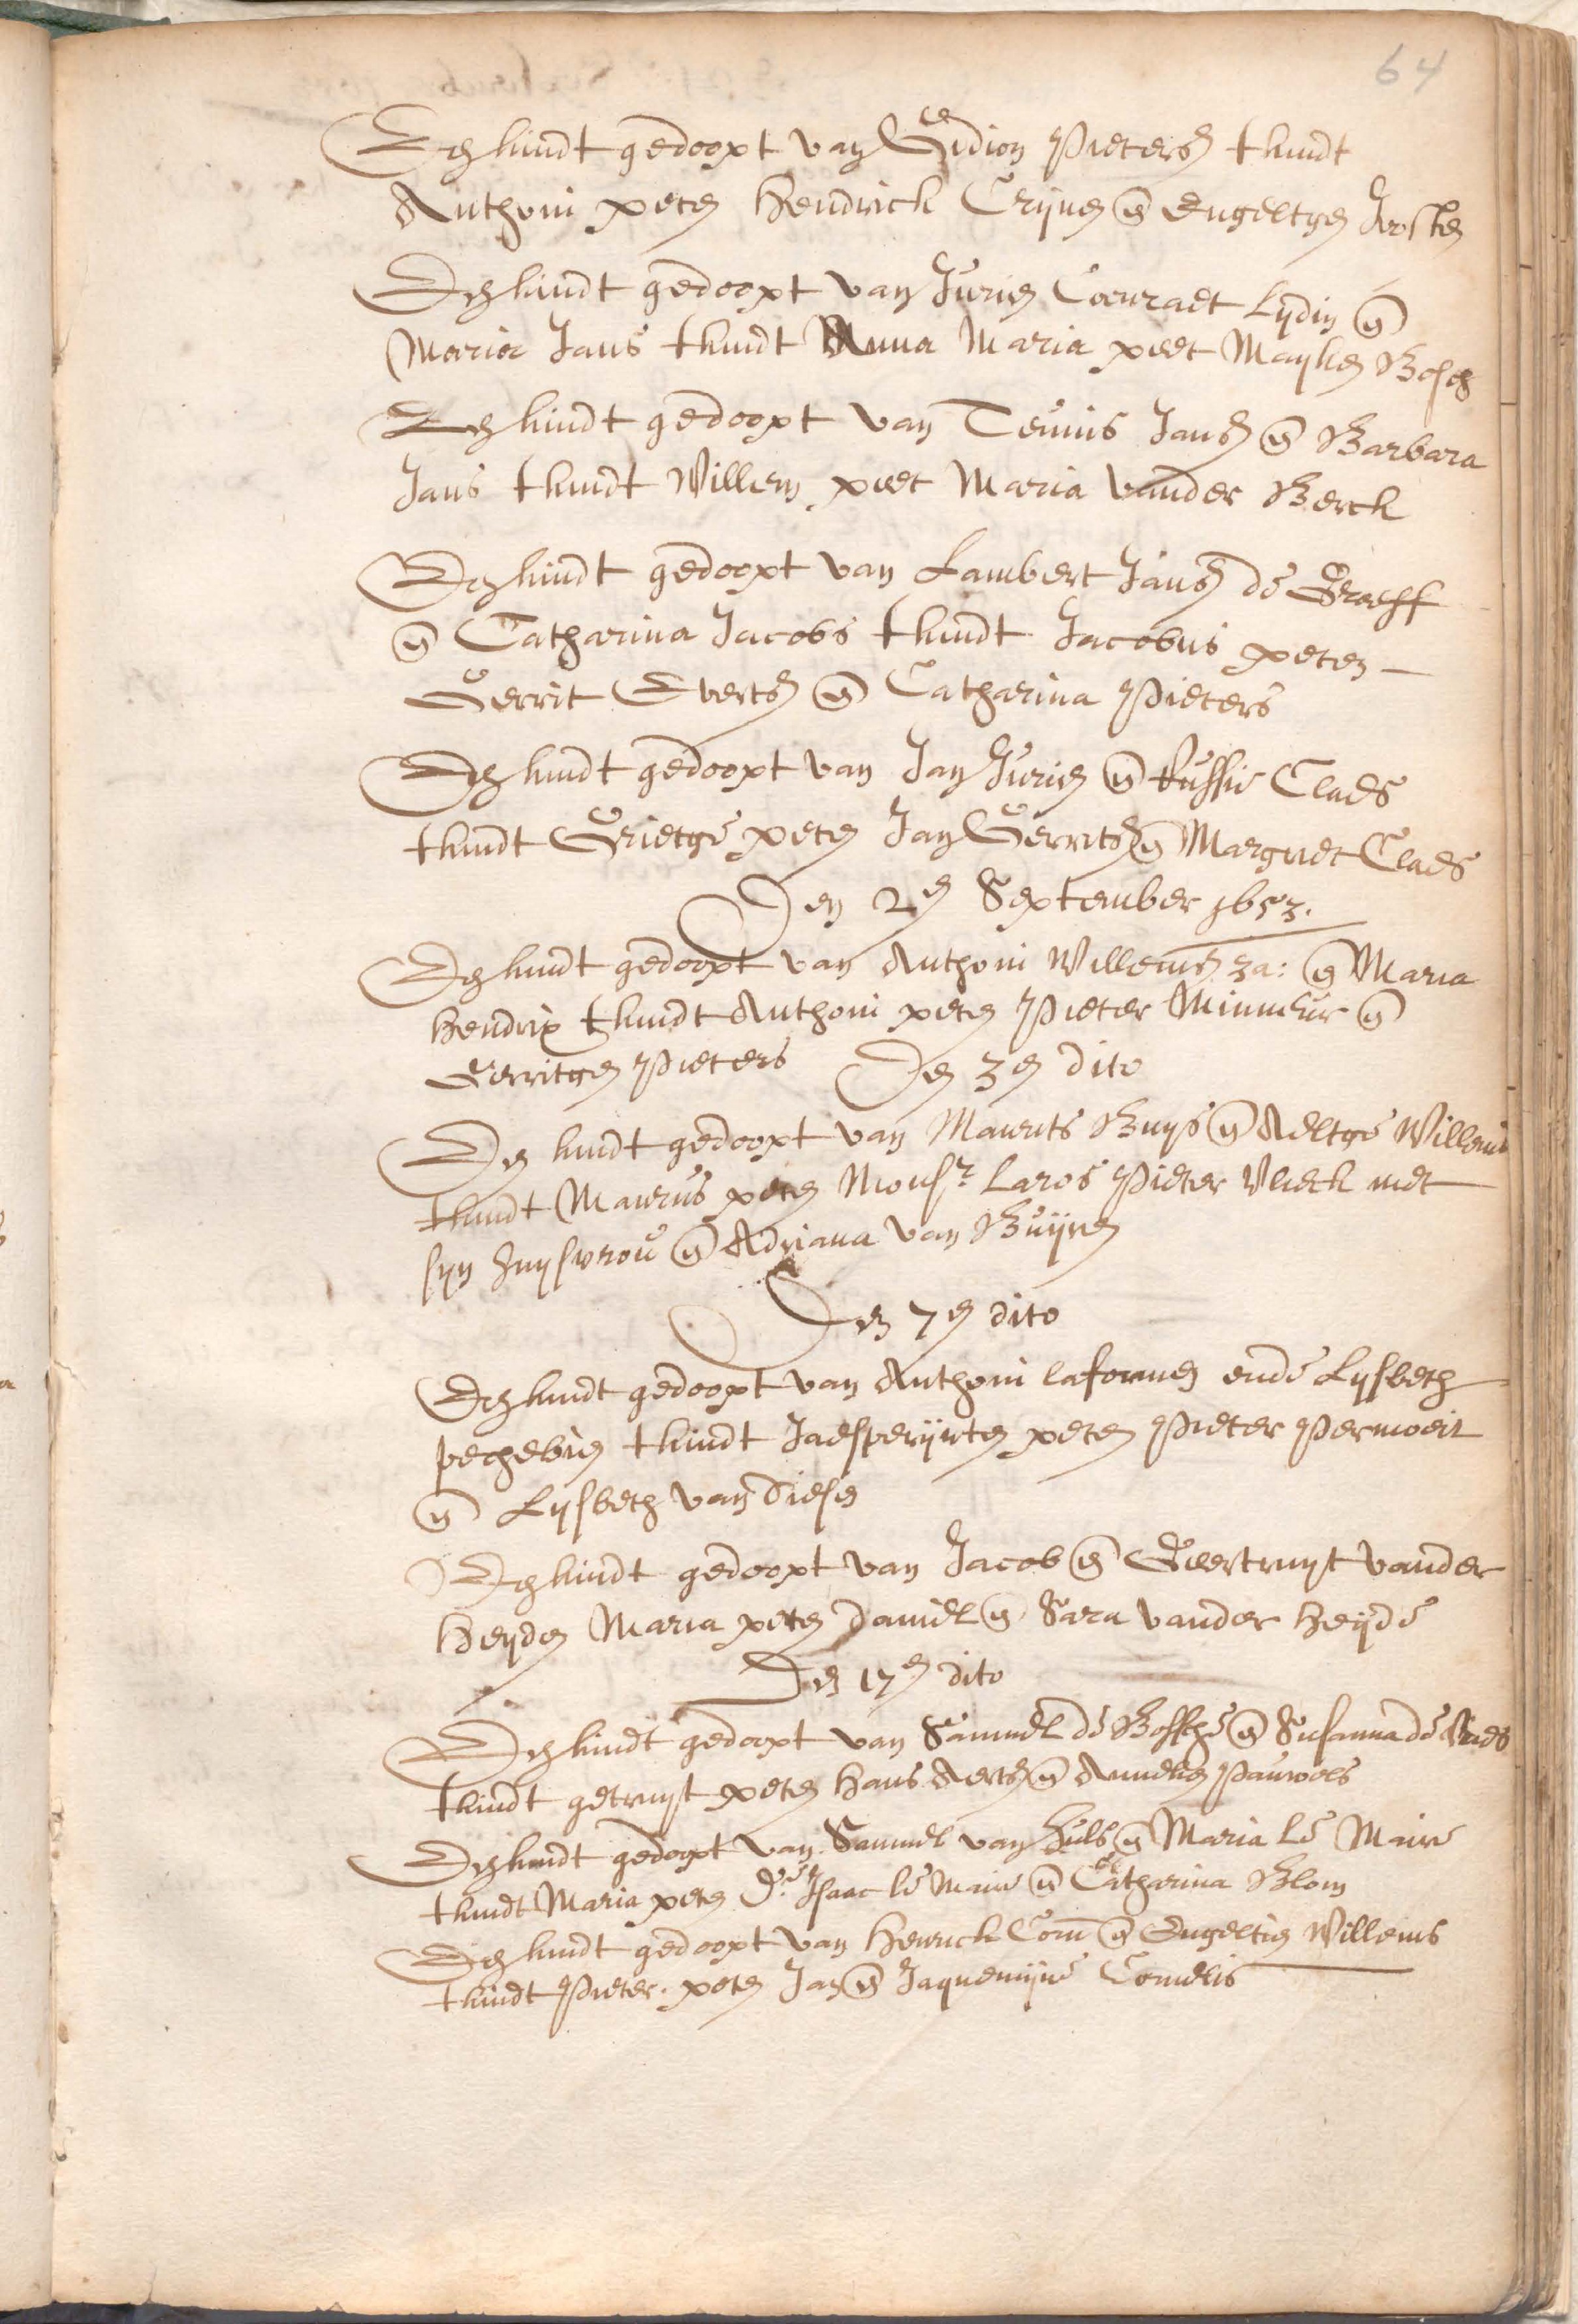 64
Een kindt gedoopt van Gedion Pieters tkindt
Anthoni peten Hendrick Crijnen en Engeltgen Joosten
Een kindt gedoopt van Jurien Coenraet Lydin en
Maria Jans tkindt Anna Maria peet Mayken Bosch
Een kindt gedoopt van Teunis Jans en Barbara
Jans tkindt Willem peet Maria vander Berck
Een kindt gedoopt van Lambert Jans de Graeff
en Catharina Jacobs tkindt Jacobus peten
Gerrit Everts en Catharina Pieters
Een kindt gedoopt van Jan Jurien en Claes
tkindt Grietge peten Jan Gerrits en Margriet Claes
Den 2en September 1653.
Een kindt gedoopt van Anthoni Willems za: en Maria
Hendrix tkindt Anthoni peten Pieter Minneur en
Gerritgen Pieters Den 3en dito
Een kindt gedoopt van Maurits Buys en Aeltge Willems
tkindt Maurus peten Monsr Laros Pieter Vlack met
syn huysvrou en Adriana van Buijren
Den 7en dito
Een kindt gedoopt van Anthoni ende Lysbeth
tkindt Jaesperijnten peten Pieter Permoeit
en Lysbeth van Diesen
Een kindt gedoopt van Jacob en Geertruyt vander
Heyden Maria peten Daniel en Sara vander Heijde
Den 17en dito
Een kindt gedoopt van Samuel de Bossche en Susanna de
tkindt getruyt peten Hans Aerts en Anneken Pauwels
Een kindt gedoopt van Samuel van Huls en Maria le Maire
tkindt Maria peten De Isaac le Maire en Catharina Blom
Een kindt gedoopt van Henrick Corn en Engeltien Willems
tkindt Pieter. peten Jan en Jaquemijne Cornelis